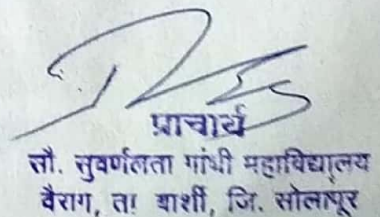 प्राचार्य
सौ. सुवर्णलता गांधी महाविद्यालय
वैराग, ता बार्शी, जि. सोलापूर